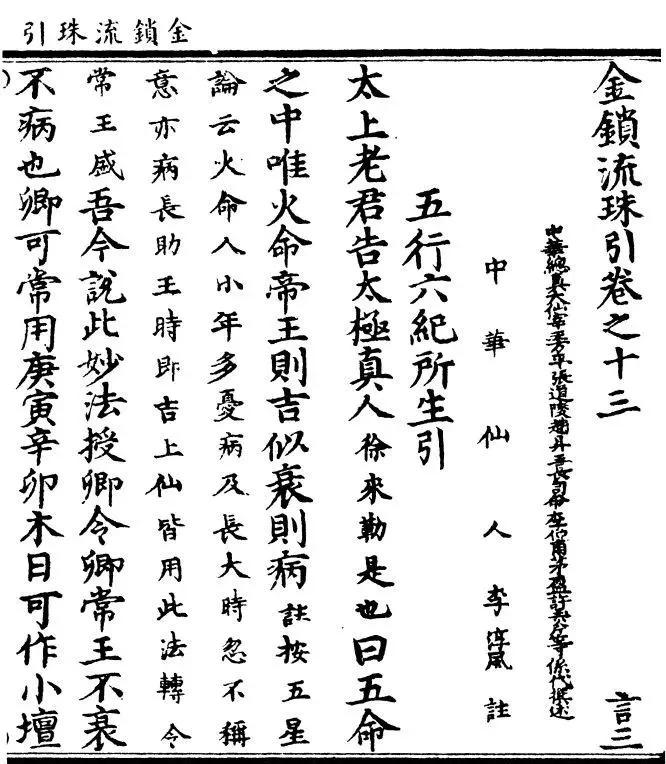 金鎖流珠引
金鎖流珠引卷之十三 言三
中華仙人李淳風註
五行六紀所生引
太上老君告太極真人徐來勒是也曰五命
之中唯火命帝王則吉似衰則病註按五星
論云火命人小年多憂病及長大時忽不稱
意亦病長助王時即吉上仙皆用此法轉令
常王盛吾今說此妙法授卿令卿常王不衰
不病也卿可常用庚寅辛卯木日可作小壇